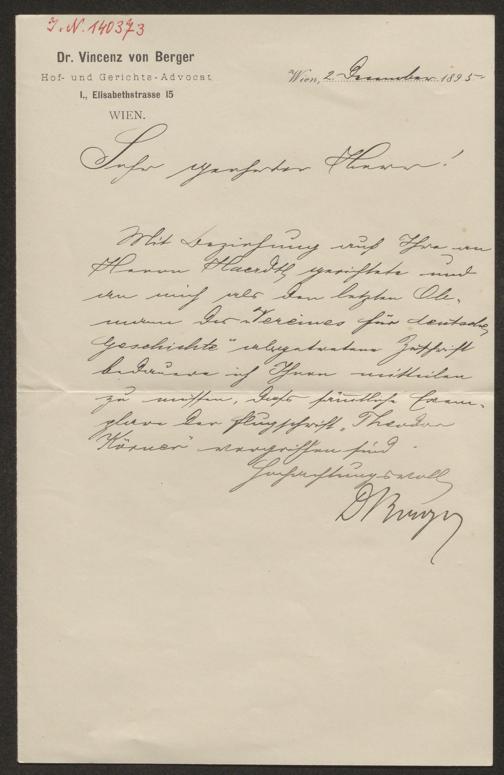 I.N. 140373
Dr. Vincenz von Berger
Hof- und Gerichts-Advocat
I., Elisabethstrasse 15
WIEN.
Wien, 2 Dezember 1895
Sehr geehrter Herr!
Mit Beziehung auf Ihre an
Herrn gerichtete und
an mich als den letzten Ob-
mann des „Vereines für deutsche
Geschichte" abgetretene Zuschrift
bedauere ich Ihnen mitteilen
zu müssen, dass sämtliche Exem-
plare der Flugschrift „Theodor
Körner" vergriffen sind.
Hochachtungsvoll
DrBerger